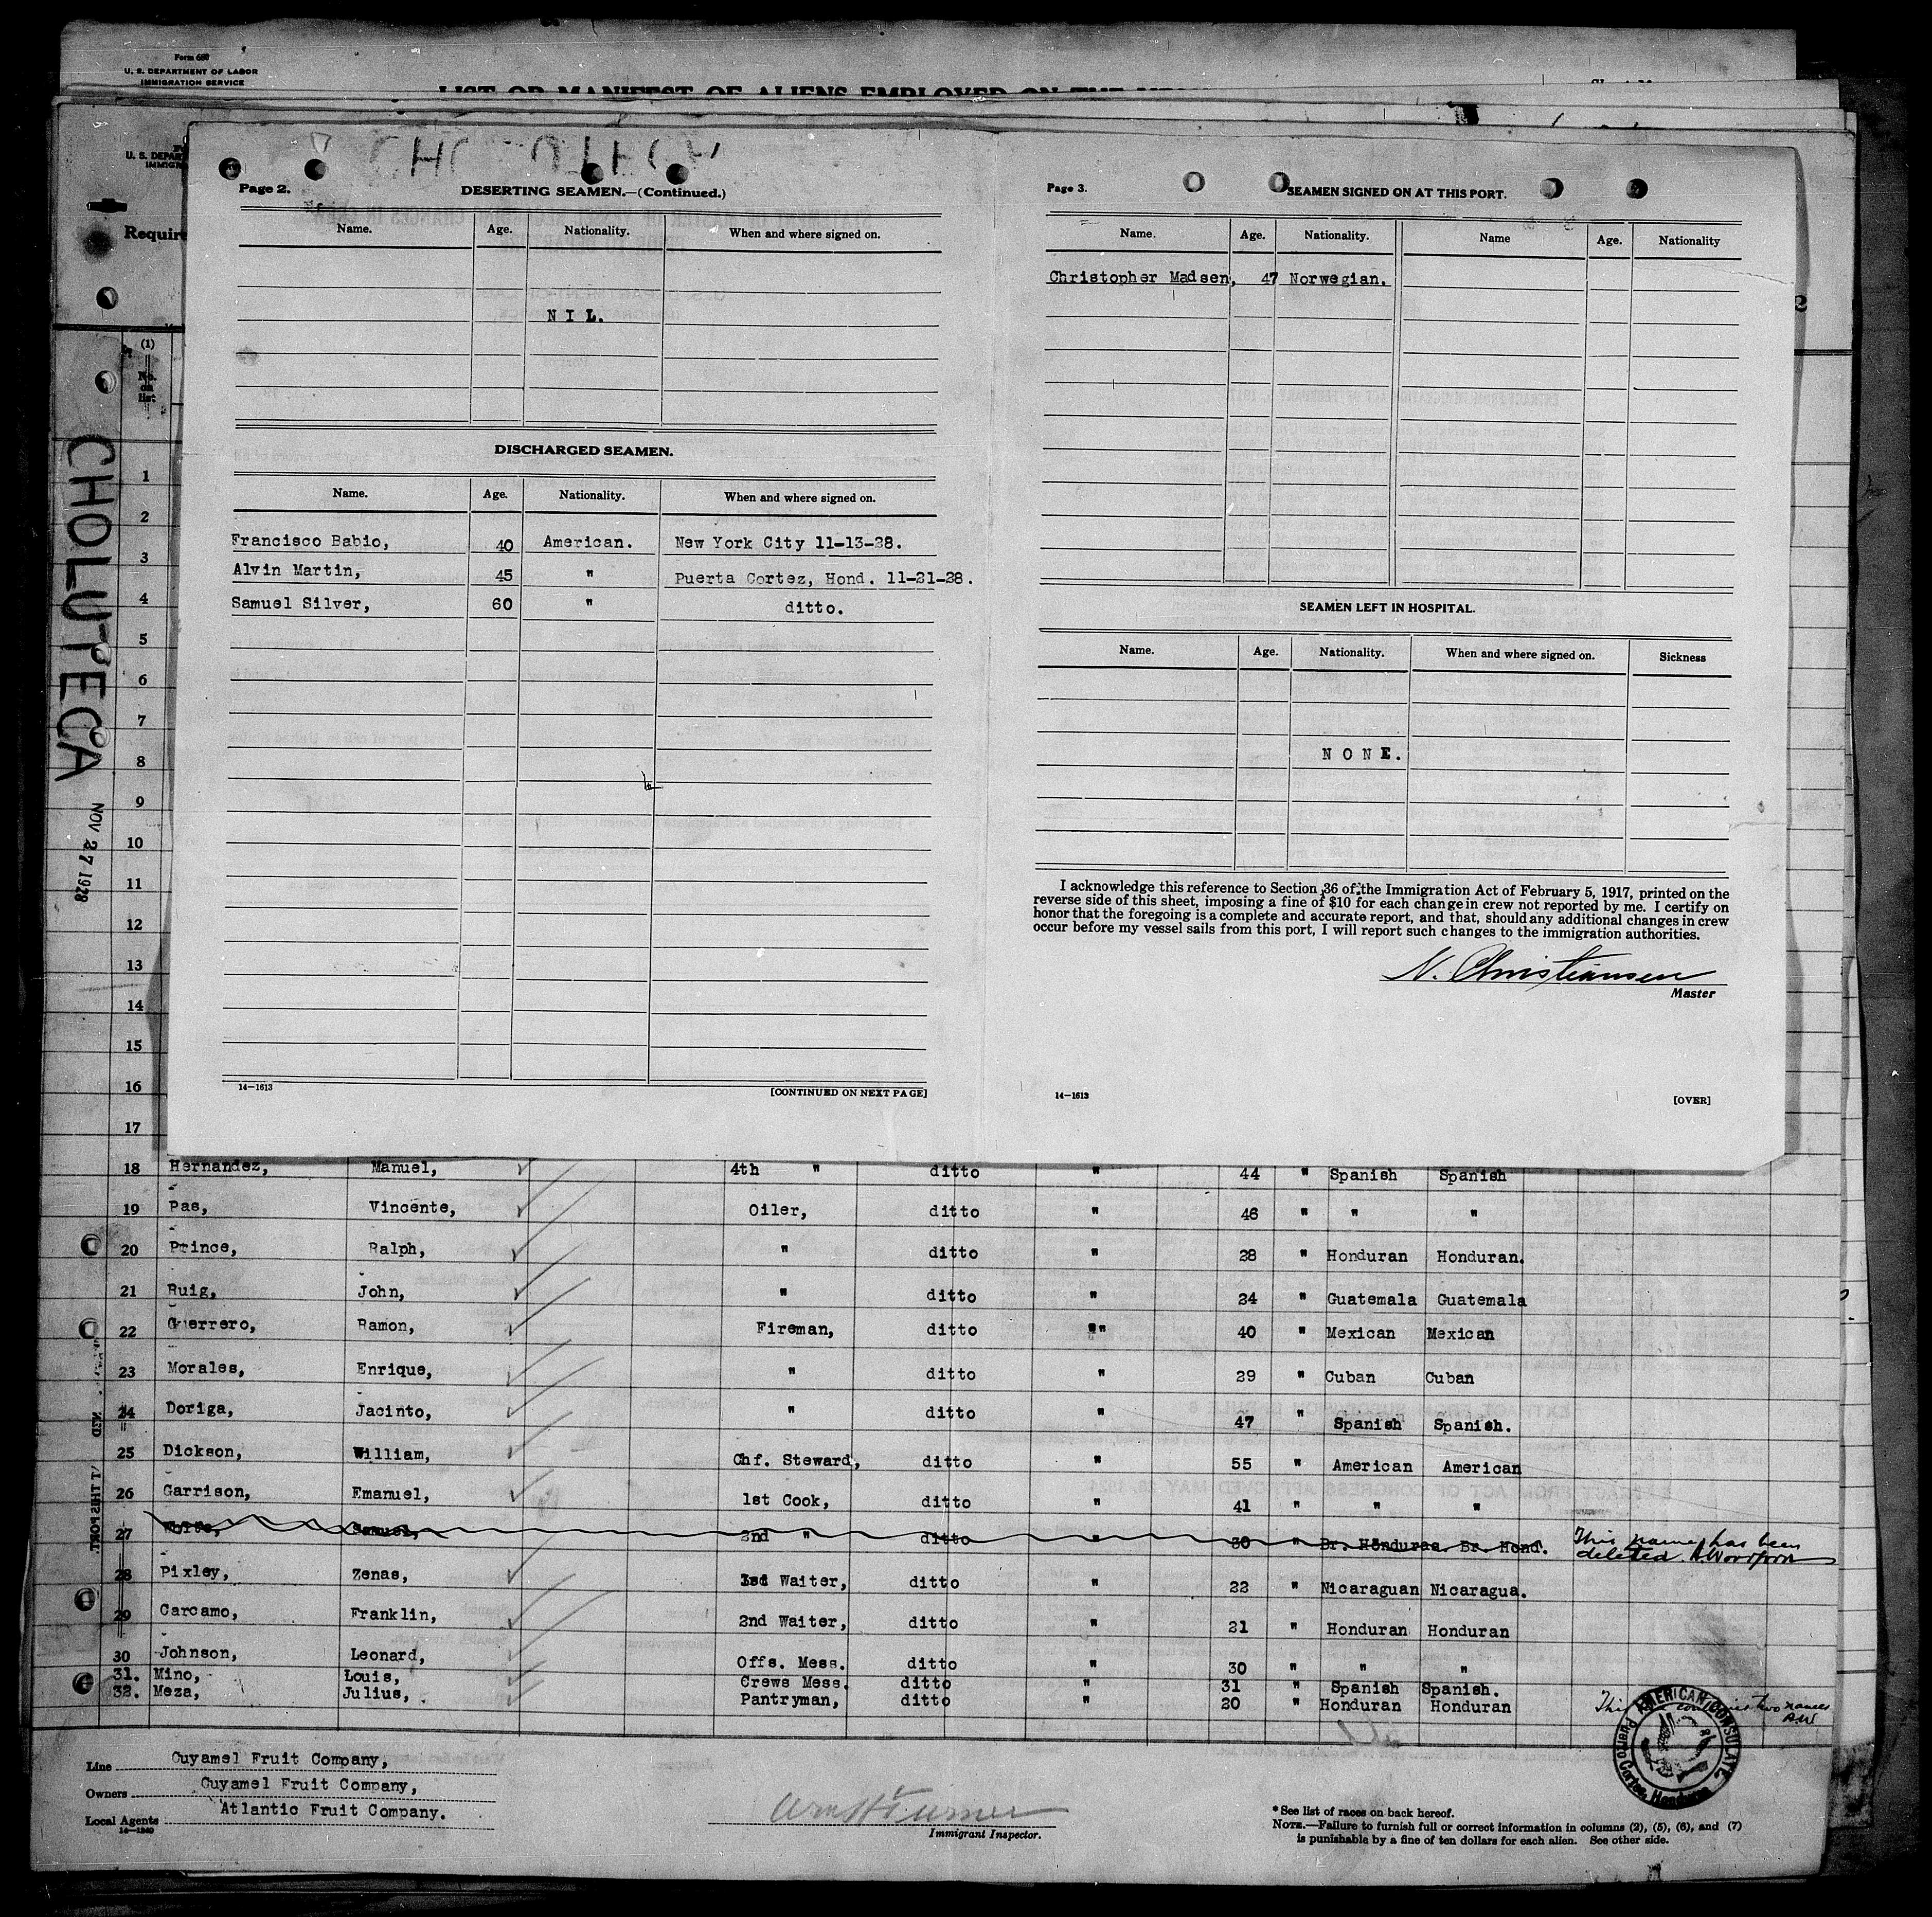 Form 680
U. S. DEPARTMENT OF LABOR
IMMIGRATION SERVICE
LIST OR MANIFEST OF ALIENS EMPLOYED ON THE
U. S. DEPAR
IMMIGR
Require
(1)
No.
on
list
CHOLUTECA
NOV 27 1928
1
2
3
4
5
6
7
8
9
10
11
12
13
14
15
16
17
Page 2.
DESERTING SEAMEN.—(Continued.)
Name. Age. Nationality. When and where signed on.
NIL.
DISCHARGED SEAMEN.
Name. Age. Nationality. When and where signed on.
Francisco Babio, 40 American. New York City 11-13-28.
Alvin Martin, 45 " Puerta Cortez, Hond. 11-21-28.
Samuel Silver, 60 " ditto.
14—1613 [CONTINUED ON NEXT PAGE]
Page 3. SEAMEN SIGNED ON AT THIS PORT.
Name. Age. Nationality. Name Age. Nationality
Christopher Madsen, 47 Norwegian.
SEAMEN LEFT IN HOSPITAL.
Name. Age. Nationality. When and where signed on. Sickness
NONE.
I acknowledge this reference to Section 36 of the Immigration Act of February 5, 1917, printed on the
reverse side of this sheet, imposing a fine of $10 for each change in crew not reported by me. I certify on
honor that the foregoing is a complete and accurate report, and that, should any additional changes in crew
occur before my vessel sails from this port, I will report such changes to the immigration authorities.
N. Christiansen
Master
14—1613 [OVER]
18 Hernandez, Manuel, 4th " ditto " 44 " Spanish Spanish
19 Pas, Vincente, Oiler, ditto " 46 " " "
20 Prince, Ralph, " ditto " 28 " Honduran Honduran.
21 Ruig, John, " ditto " 24 " Guatemala Guatemala
22 Guerrero, Ramon, Fireman, ditto "" 40 " Mexican Mexican
23 Morales, Enrique, " ditto " 29 " Cuban Cuban
24 Doriga, Jacinto, " ditto " 47 " Spanish Spanish.
25 Dickson, William, Chf. Steward, ditto " 55 " American American
26 Garrison, Emanuel, 1st Cook, ditto " 41 " " "
27 White, Samuel, 2nd " ditto " 30 " Br. Honduras. Br. Hond. This name has been
deleted
28 Pixley, Zenas, Waiter, ditto " 22 " Nicaraguan Nicaragua.
29 Carcamo, Franklin, 2nd Waiter, ditto " 21 " Honduran Honduran
30 Johnson, Leonard, Offs. Mess. ditto " 30 " " "
31. Mino, Louis, Crews Mess. ditto " 31 " Spanish Spanish.
32. Meza, Julius, Pantryman, ditto " 20 " Honduran Honduran
two names
THIS PORT.
AMERICAN CONSULATE,
Puerto Cortes, Honduras
Line Cuyamel Fruit Company,
Owners Cuyamel Fruit Company,
Local Agents Atlantic Fruit Company.
14—1240
Turner
Immigrant Inspector.
*See list of races on back hereof.
NOTE.—Failure to furnish full or correct information in columns (2), (5), (6), and (7)
is punishable by a fine of ten dollars for each alien. See other side.